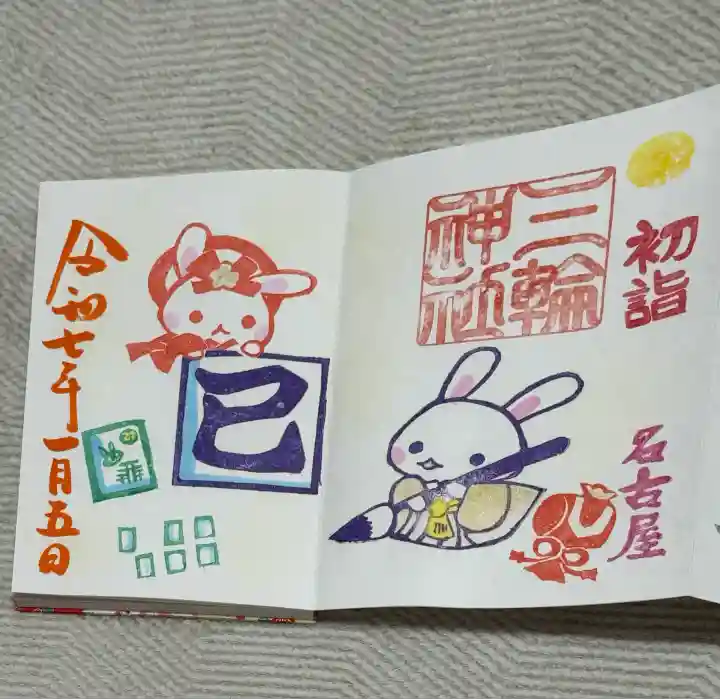 初詣
三輪
神社
名古屋
巳
令和七年一月五日